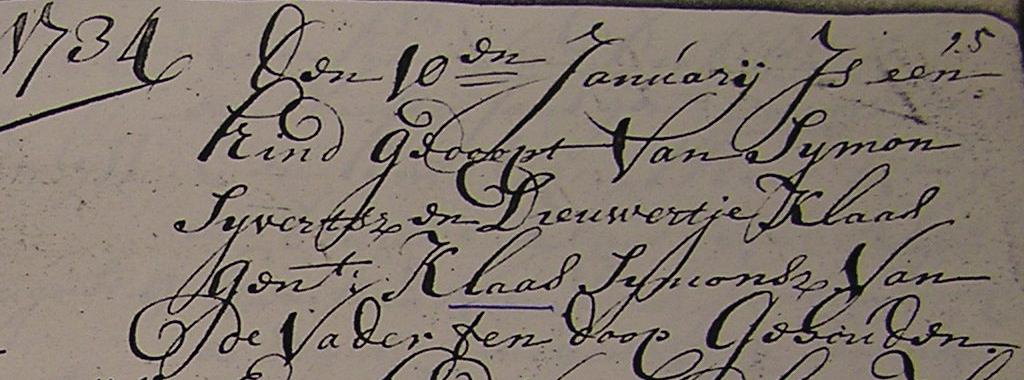 25
1734 Den 10 den January Is een
Kind Gedoopt Van Symon
Syvertsz en Dieuwertje Klaas
gent: Klaas Symonsz Van
De Vader ten doop Gehouden.